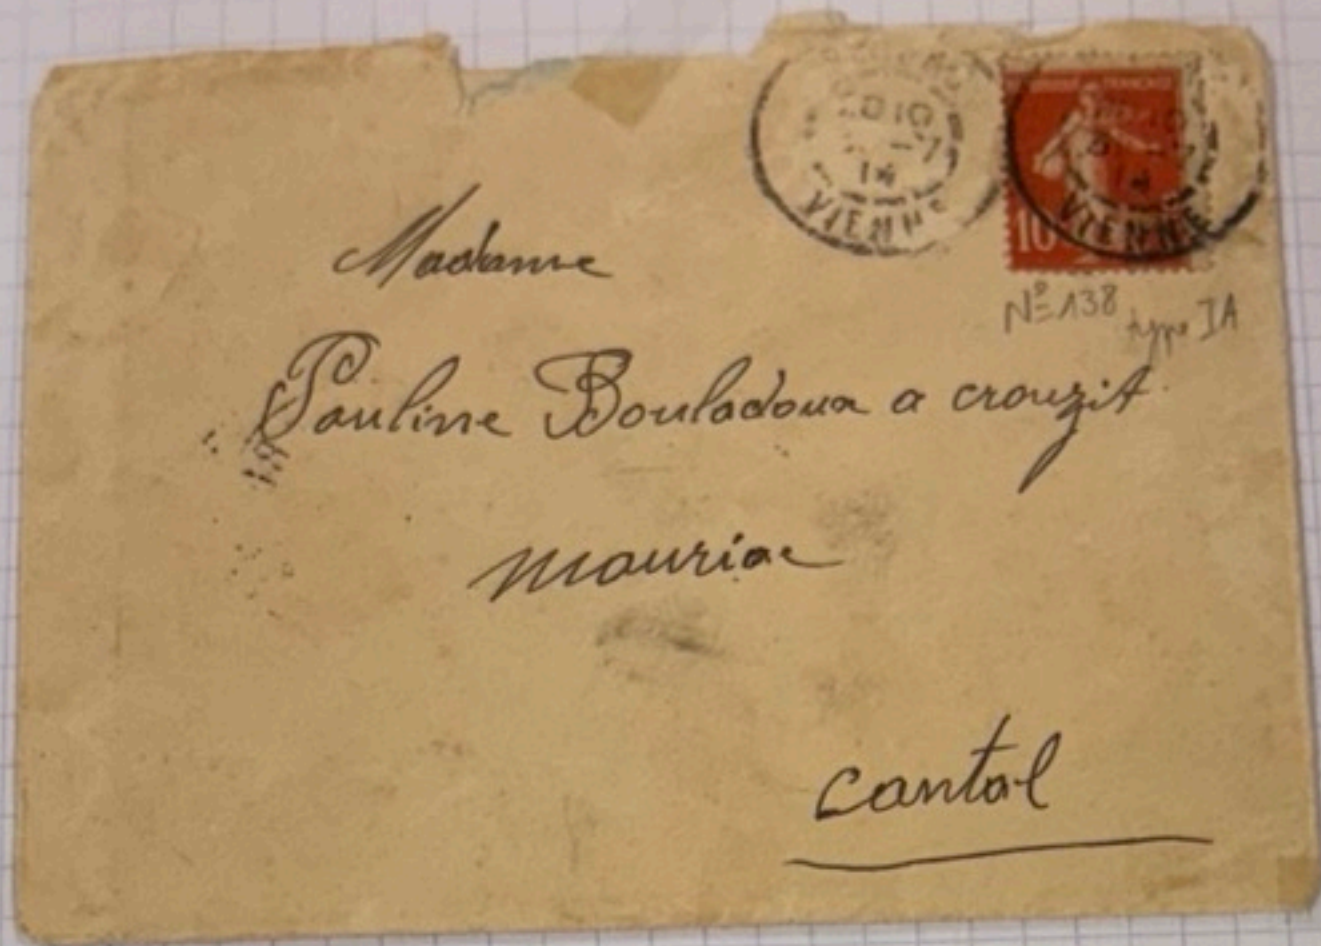 10
-7
14
VIENNE
10
VIENNE
N° 138 type IA
Madame
Pauline Bouladoux a crouzit
mauriac
cantal